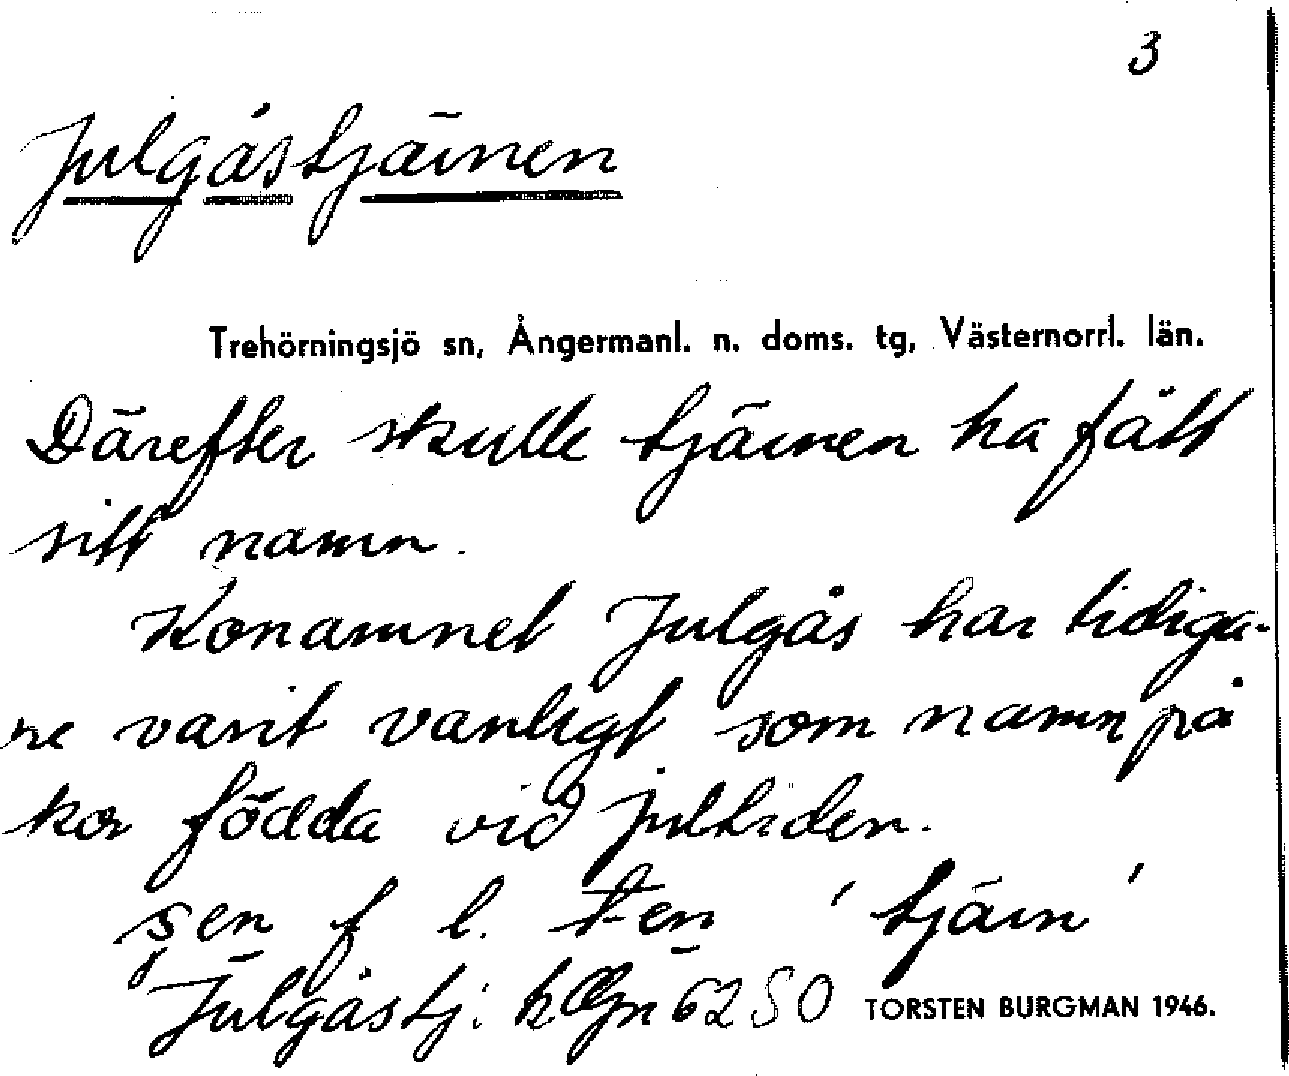 3
Julgåstjärnen
Trehörningsjö sn, Ångermanl. n. doms. tg, Västernorrl. län.
Därefter skulle tjärnen ha fått
sitt namn.
Konamnet Julgås har tidiga-
re varit vanligt som namn på
kor födda vid jultiden.
sen f l. t-en 'tjärn'
Julgåstj: 6250 TORSTEN BURGMAN 1946.